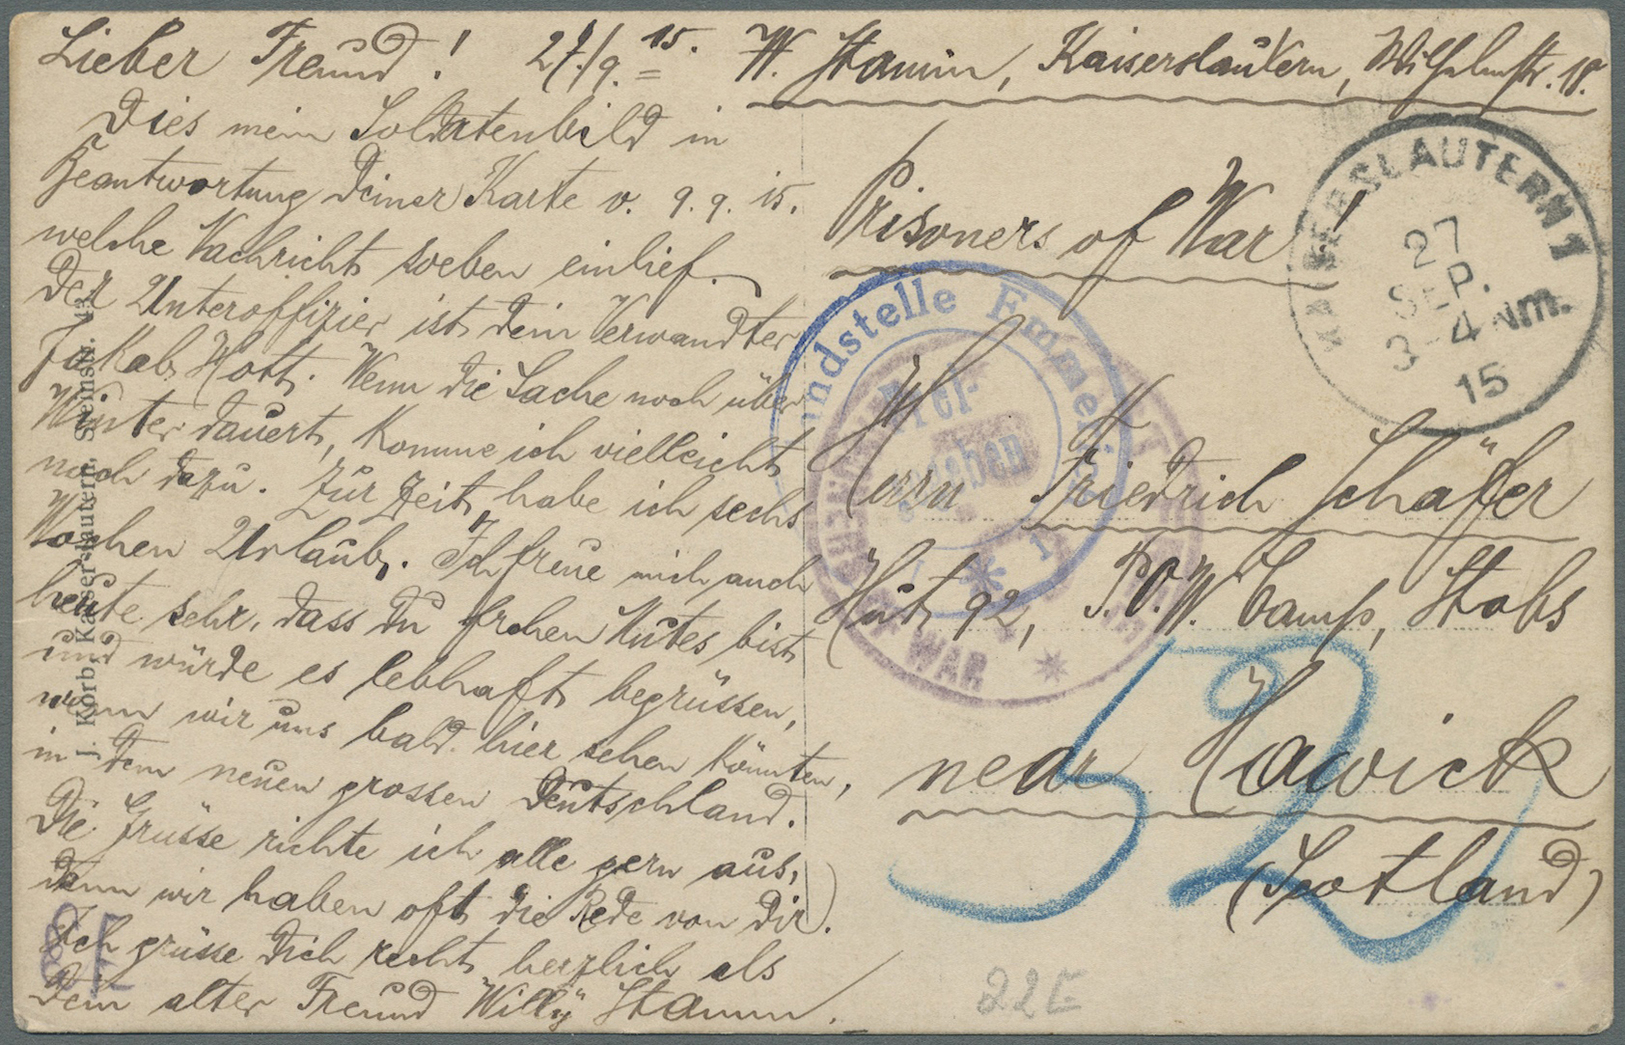 Lieber Freund! 27./9. 15. W. Stamm, Kaiserslautern, Wilhelmstr. 18.
Dies mein Soldatenbild in
Beantwortung Deiner Karte v. 9.9.15.
welche Nachricht soeben einlief.
Der Unteroffizier ist dein Verwandter
Jakob Hott. Wenn die Sache noch über
Winter dauert, komme ich vielleicht
noch dazu. Zur Zeit habe ich sechs
Wochen Urlaub. Ich freue mich auch
heute sehr, dass du frohen Mutes bist
und würde es lebhaft begrüssen,
wenn wir uns bald hier sehen könnten,
in dem neuen grossen Deutschland.
Die Grüsse richte ich alle gern aus,
denn wir haben oft die Rede von dir.
Ich grüsse Dich recht herzlich als
Dein alter Freund "Willy" Stamm.
Prisoners of War!
Herrn Friedrich Schäfer
Hut 92, P.O.W. Camp, Stobs
near Hawick
(Scotland)
KAISERSLAUTERN 1
27
SEP.
3-4 Nm.
15
Emmerich
1
OF WAR
52
22E
J. Korb, Kaiserslautern, Steinstr.